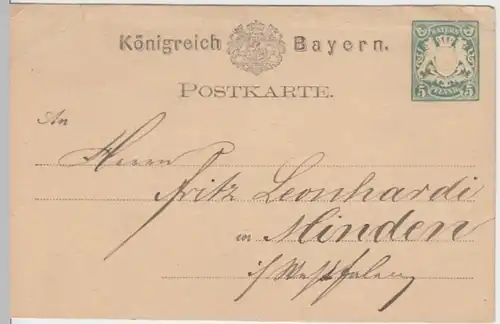 Königreich Bayern.
BAYERN
5 PFENNIG 5
POSTKARTE.
An
Herrn
Fritz Leonhardi
in Minden
i/Westfalen